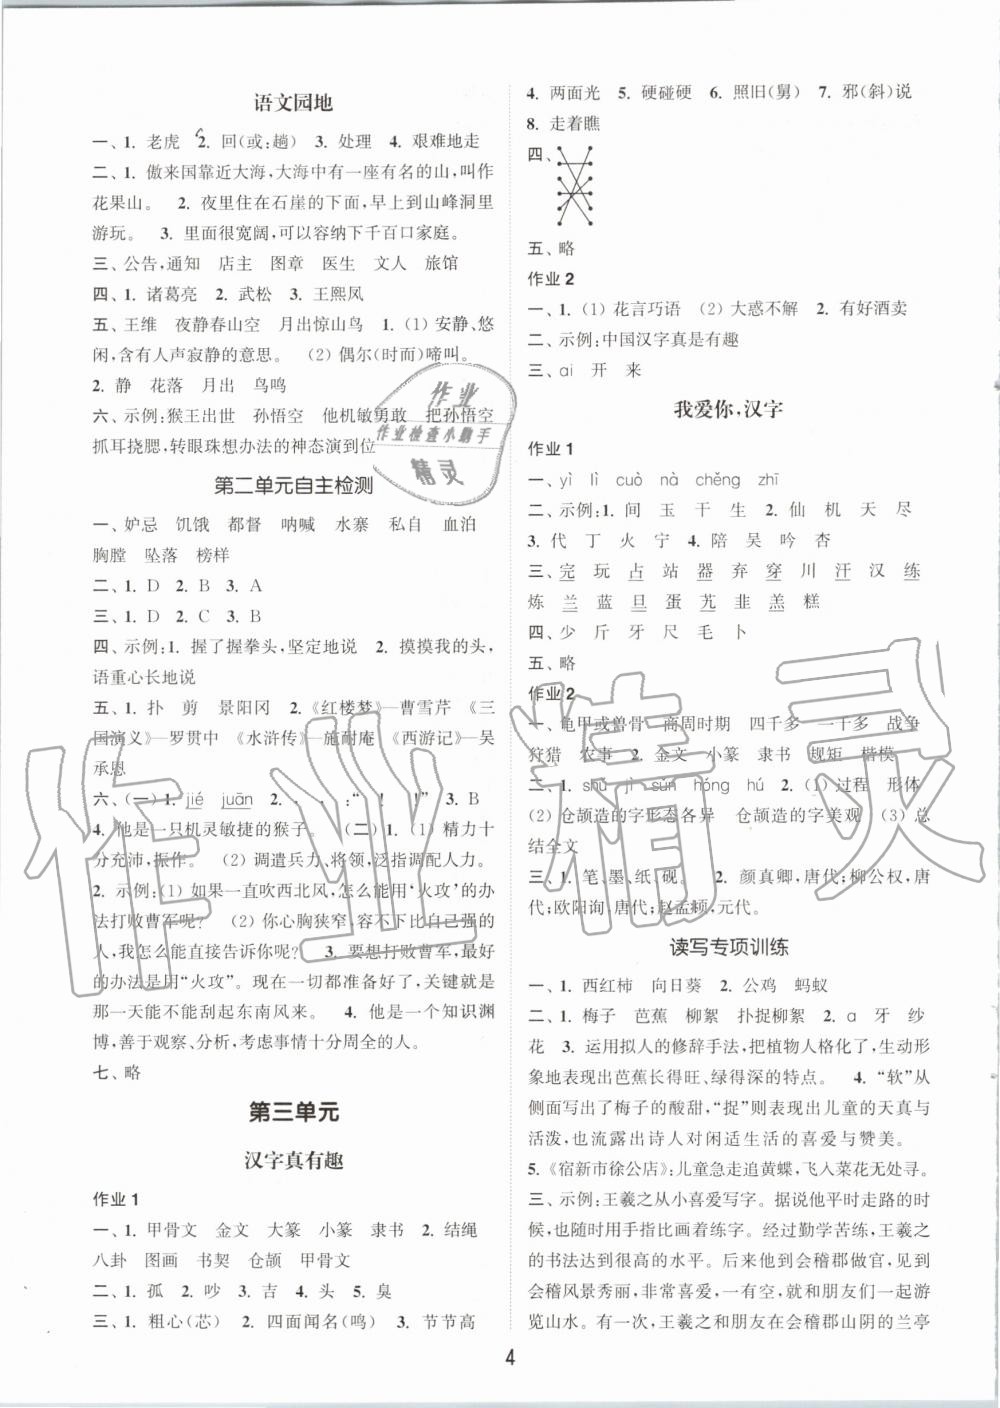 语文园地
一、1. 老虎 2. 回(或:趟) 3. 处理 4. 艰难地走
二、1. 傲来国靠近大海,大海中有一座有名的山,叫作
花果山。 2. 夜里住在石崖的下面,早上到山峰洞里
游玩。 3. 里面很宽阔,可以容纳下千百口家庭。
三、公告,通知 店主 图章 医生 文人 旅馆
四、1. 诸葛亮 2. 武松 3. 王熙凤
五、王维 夜静春山空 月出惊山鸟 1. (1) 安静、悠
闲,含有人声寂静的意思。 (2) 偶尔(时而)啼叫。
2. 静 花落 月出 鸟鸣
六、示例:猴王出世 孙悟空 他机敏勇敢 把孙悟空
抓耳挠腮,转眼珠想办法的神态演到位
第二单元自主检测
一、妒忌 饥饿 都督 呐喊 水寨 私自 血泊
胸膛 坠落 榜样
二、1. D 2. B 3. A
三、1. D 2. C 3. B
四、示例:1. 握了握拳头,坚定地说 2. 摸摸我的头,
语重心长地说
五、1. 扑 剪 景阳冈 2.《红楼梦》—曹雪芹 《三
国演义》—罗贯中 《水浒传》—施耐庵 《西游记》—吴
承恩
六、(一) 1. jié juān 2. , , :“ ! ! ” 3. B
4. 他是一只机灵敏捷的猴子。 (二) 1. (1) 精力十
分充沛,振作。 (2) 调遣兵力、将领,泛指调配人力。
2. 示例:(1) 如果一直吹西北风,怎么能用“火攻”的办
法打败曹军呢? (2) 你心胸狭窄,容不下比自己强的
人,我怎么能直接告诉你呢? 3. 要想打败曹军,最好
的办法是用“火攻”。万事都准备好了,关键就是
那一天能不能刮起东南风来。 4. 他是一个知识渊
博,善于观察、分析,考虑事情十分周全的人。
七、略
第三单元
汉字真有趣
作业 1
一、1. 甲骨文 金文 大篆 小篆 隶书 2. 结绳
八卦 图画 书契 仓颉 甲骨文
二、1. 孤 2. 吵 3. 吉 4. 头 5. 臭
三、1. 粗心(芯) 2. 四面闻名(鸣) 3. 节节高
4. 两面光 5. 硬碰硬 6. 照旧(舅) 7. 邪(斜)说
8. 走着瞧
四、
五、略
作业 2
一、1. (1) 花言巧语 (2) 大惑不解 2. 有好酒卖
二、示例:中国汉字真是有趣
三、ai 开 来
我爱你,汉字
作业 1
一、yì lì cuò nà chěng zhī
二、示例:1. 间 玉 干 生 2. 仙 机 天 尽
3. 代 丁 火 宁 4. 陪 吴 吟 杏
三、完 玩 占 站 器 弃 穿 川 汗 汉 练
炼 兰 蓝 旦 蛋 艽 韭 羔 糕
四、少 斤 牙 尺 毛 卜
五、略
作业 2
一、龟甲或兽骨 商周时期 四千多 一千多 战争
狩猎 农事 2. 金文 小篆 隶书 规矩 楷模
二、1. shǔ jì sǔn hóng hú 2. (1) 过程 形体
(2) 仓颉造的字形态各异 仓颉造的字美观 (3) 总
结全文
三、1. 笔、墨、纸、砚。 2. 颜真卿,唐代;柳公权,唐
代;欧阳询,唐代;赵孟頫,元代。
读写专项训练
一、1. 西红柿 向日葵 2. 公鸡 蚂蚁
二、1. 梅子 芭蕉 柳絮 扑捉柳絮 2. ɑ 牙 纱
花 3. 运用拟人的修辞手法,把植物人格化了,生动形
象地表现出芭蕉长得旺、绿得深的特点。 4. “软”从
侧面写出了梅子的酸甜,“捉”则表现出儿童的天真与
活泼,也流露出诗人对闲适生活的喜爱与赞美。
5.《宿新市徐公店》:儿童急走追黄蝶,飞入菜花无处寻。
三、示例:王羲之从小喜爱写字。据说他平时走路的时
候,也随时用手指比画着练字。经过勤学苦练,王羲之
的书法达到很高的水平。后来他到会稽郡做官,见到
会稽风景秀丽,非常喜爱,一有空,就和朋友们一起游
览山水。有一次,王羲之和朋友在会稽郡山阴的兰亭
4
作业
作业检查小助手
精灵
作业精灵